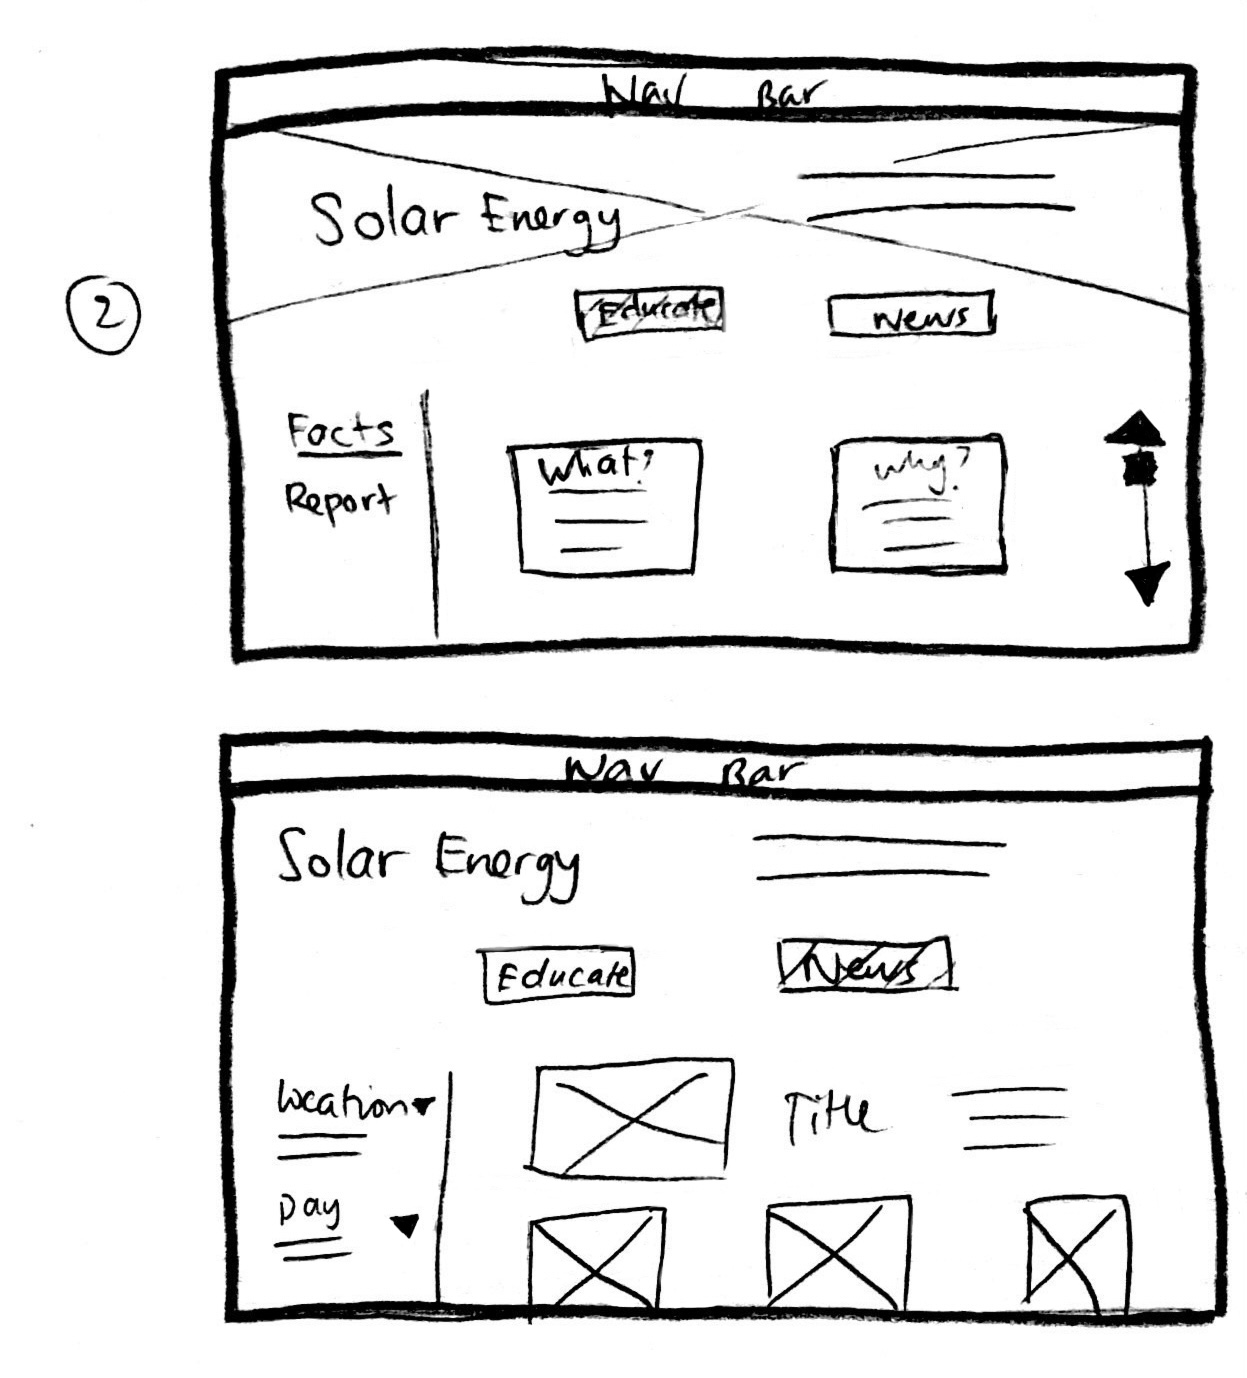 Nav Bar
Solar Energy
2
Educate News
Facts
Report
What?
Why?
Nav Bar
Solar Energy
Educate News
Location
Day
Title